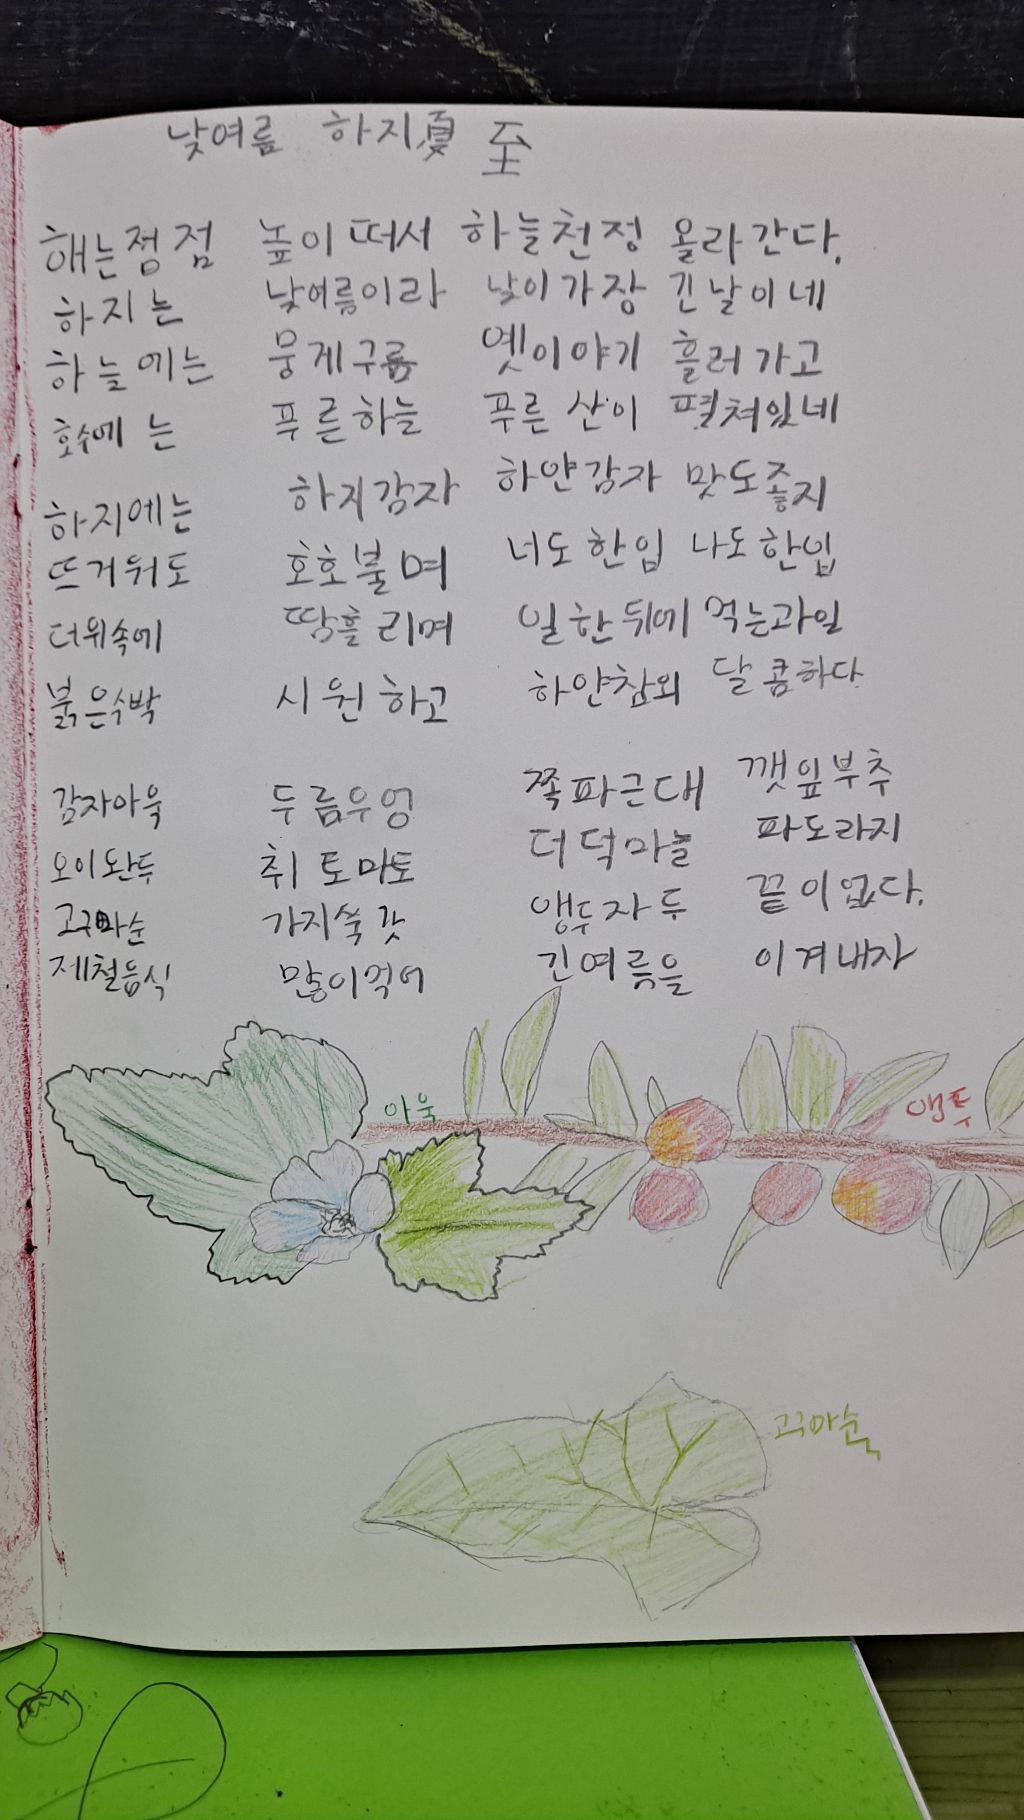 낮여름 하지夏至
해는점점 높이떠서 하늘천정 올라간다.
하지는 낮여름이라 낮이가장 긴날이네
하늘에는 뭉게구름 옛이야기 흘러가고
호수에는 푸른하늘 푸른산이 펼쳐있네
하지에는 하지감자 하얀감자 맛도좋지
뜨거워도 호호불며 너도한입 나도한입
더위속에 땀흘리며 일한뒤에 먹는과일
붉은수박 시원하고 하얀참외 달콤하다
감자아욱 두릅우엉 쪽파근대 깻잎부추
오이완두 취토마토 더덕마늘 파도라지
고구마순 가지쑥갓 앵두자두 끝이없다.
제철음식 많이먹어 긴여름을 이겨내자
아욱
앵두
고구마순